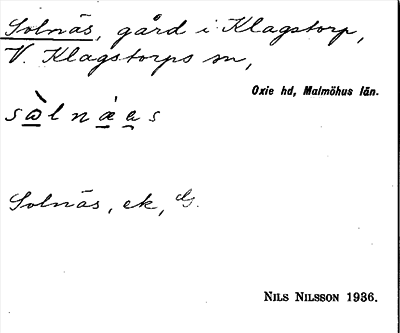 Solnäs, gård i Klagstorp,
V. Klagstorps sn,
Oxie hd, Malmöhus län.
Solnäs, ek,
NILS NILSSON 1936.